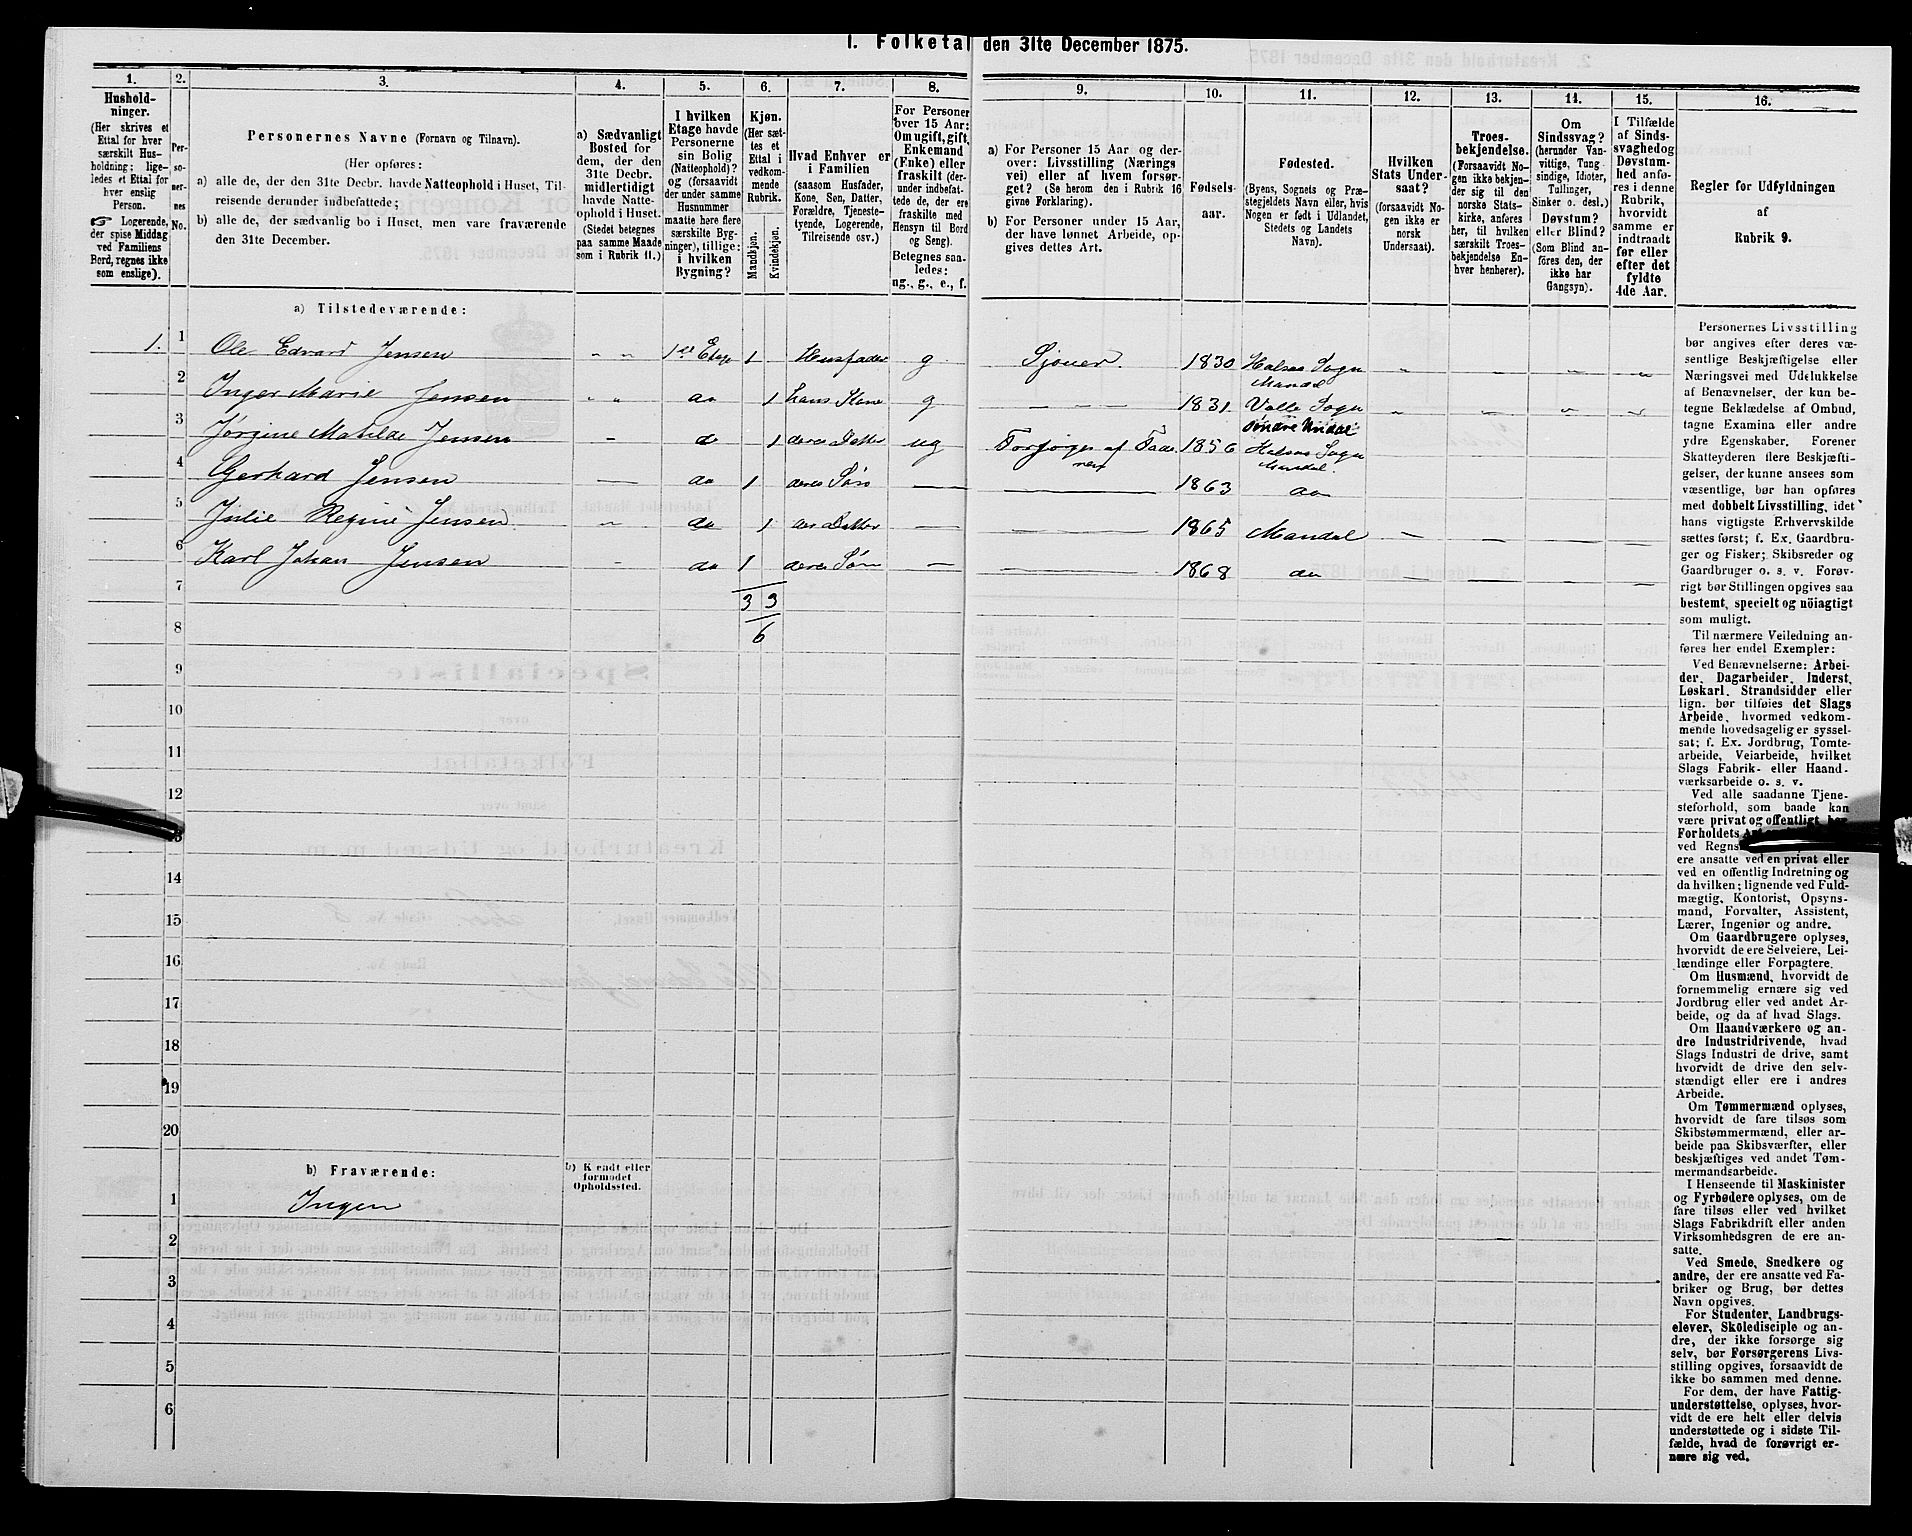 1. Folketal den 31te December 1875.
1. 2. 3. 4. 5. 6. 7. 8. 9. 10. 11. 12. 13. 14. 15. 16.
Hushold-
ninger.
(Her skrives et
Ettal for hver
særskilt Hus-
holdning; lige-
ledes et Ettal for
hver enslig
Person.
☞ Logerende,
der spise Middag
ved Familiens
Bord, regnes ikke
som enslige).
Per-
so-
ner-
nes
No.
Personernes Navne (Fornavn og Tilnavn).
(Her opføres:
a) alle de, der den 31te Decbr. havde Natteophold i Huset, Til-
reisende derunder indbefattede;
b) alle de, der sædvanlig bo i Huset, men vare fraværende
den 31te December.
a) Sædvanligt
Bosted for
dem, der den
31te Decbr.
midlertidigt
havde Natte-
ophold i Huset.
(Stedet betegnes
paa samme Maade
som i Rubrik 11.)
I hvilken
Etage havde
Personerne
sin Bolig
(Natteophold)?
og (forsaavidt
der under samme
Husnummer
maatte høre flere
særskilte Byg-
ninger), tillige:
i hvilken
Bygning?
Kjøn.
(Her sæt-
tes et
Ettal i
vedkom-
mende
Rubrik.
Mandkjøn.
Kvindekjøn.
Hvad Enhver er
i Familien
(saasom Husfader,
Kone, Søn, Datter,
Forældre, Tjeneste-
tyende, Logerende,
Tilreisende osv.)
For Personer
over 15 Aar:
Om ugift, gift,
Enkemand
(Enke) eller
fraskilt (der-
under indbefat-
tede de, der ere
fraskilte med
Hensyn til Bord
og Seng).
Betegnes saa-
ledes:
ug., g., e., f.
a) For Personer 15 Aar og der-
over: Livsstilling (Nærings
vei) eller af hvem forsør-
get? (Se herom den i Rubrik 16
givne Forklaring).
b) For Personer under 15 Aar,
der have lønnet Arbeide, op-
gives dettes Art.
Fødsels-
aar.
Fødested.
(Byens, Sognets og Præ-
stegjeldets Navn eller, hvis
Nogen er født i Udlandet,
Stedets og Landets
Navn).
Hvilken
Stats Under-
saat?
(forsaavidt No-
gen ikke er
norsk
Undersaat).
Troes-
bekjendelse.
(Forsaavidt No-
gen ikke bekjen-
der sig til den
norske Stats-
kirke, anføres
her, til hvilken
særskilt Troes-
bekjendelse En-
hver henhører).
Om
Sindssvag?
(herunder Van-
vittige, Tung
sindige, Idioter,
Tullinger,
Sinker o. desl.)
Døvstum?
eller Blind?
(Som Blind an-
føres den, der
ikke har
Gangsyn).
I Tilfælde
af Sinds-
svaghed og
Døvstum-
hed anfø-
res i denne
Rubrik,
hvorvidt
samme er
indtraadt
før eller
efter det
fyldte
4de Aar.
Regler for Udfyldningen
af
Rubrik 9.
a) Tilstedeværende:
1. 1 Ole Edvard Jensen " " 1ste Etage 1 Husfader g Sjøuer. 1830 Halsaa Sogn Mandal " " " "
2 Inger Marie Jensen " " do 1 hans Kone g — — — 1831 Valle Sogn Søndre Undal " " " "
3 Jørgine Matilde Jensen " do 1 deres Datter ug Forsørges af Faderen 1856 Halsaa Sogn Mandal
4 Gerhard Jensen — do 1 deres Søn — — 1863 do
5 Julie Regine Jensen " do 1 der Datter — — 1865 Mandal — — — —
6 Karl Johan Jensen " do 1 deres Søn — — 1868 do — — — —
7 3 3
8 6
9
10
11
12
13
14
15
16
17
18
19
20
b) Fraværende:
b) Kjendt eller
formodet
Opholdssted.
1 Ingen
2
3
4
5
6
Personernes Livsstilling
bør angives efter deres væ-
sentlige Beskjæftigelse eller
Næringsvei med Udelukkelse
af Benævnelser, der kun be-
tegne Beklædelse af Ombud,
tagne Examina eller andre
ydre Egenskaber. Forener
Skatteyderen flere Beskjæfti-
gelser, der kunne ansees som
væsentlige, bør han opføres
med dobbelt Livsstilling, idet
hans vigtigste Erhvervskilde
sættes først; f. Ex. Gaardbru-
ger og Fisker; Skibsreder og
Gaardbruger o. s. v. Forøv-
rigt bør Stillingen opgives saa
bestemt, specielt og nöiagtigt
som muligt.
Til nærmere Veiledning an-
føres her endel Exempler:
Ved Benævnelserne: Arbei-
der, Dagarbeider, Inderst,
Løskarl, Strandsidder eller
lign. bør tilføies det Slags
Arbeide, hvormed vedkom-
mende hovedsagelig er syssel-
sat; f. Ex. Jordbrug, Tomte-
arbeide, Veiarbeide, hvilket
Slags Fabrik- eller Haand-
værksarbeide o. s. v.
Ved alle saadanne Tjene-
steforhold, som baade kan
være privat og offentligt, bør
Forholdets
ved Regns
ere ansatte ved en privat eller
ved en offentlig Indretning og
da hvilken; lignende ved Fuld-
mægtig, Kontorist, Opsyns-
mand, Forvalter, Assistent,
Lærer, Ingeniør og andre.
Om Gaardbrugere oplyses,
hvorvidt de ere Selveiere, Lei-
lændinge eller Forpagtere.
Om Husmænd, hvorvidt de
fornemmelig ernære sig ved
Jordbrug eller ved andet Ar-
beide, og da af hvad Slags.
Om Haandværkere og an-
dre Industridrivende, hvad
Slags Industri de drive, samt
hvorvidt de drive den selv-
stændigt eller ere i andres
Arbeide.
Om Tømmermænd oplyses,
hvorvidt de fare tilsøs som
Skibstømmermænd, eller ar-
beide paa Skibsværfter, eller
beskjæftiges ved andet Tøm-
mermandsarbeide.
I Henseende til Maskinister
og Fyrbødere oplyses, om de
fare tilsøs eller ved hvilket
Slags Fabrikdrift eller anden
Virksomhedsgren de ere an-
satte.
Ved Smede, Snedkere og
andre, der ere ansatte ved Fa-
briker og Brug, bør dettes
Navn opgives.
For Studenter, Landbrugs-
elever, Skoledisciple og an-
dre, der ikke forsørge sig
selv, bør Forsørgerens Livs-
stilling opgives, forsaavidt de
ikke bo sammen med denne.
For dem, der have Fattig-
understøttelse, oplyses, hvor-
vidt de ere helt eller delvis
understøttede og i sidste Til-
fælde, hvad de forøvrigt er-
nære sig ved.